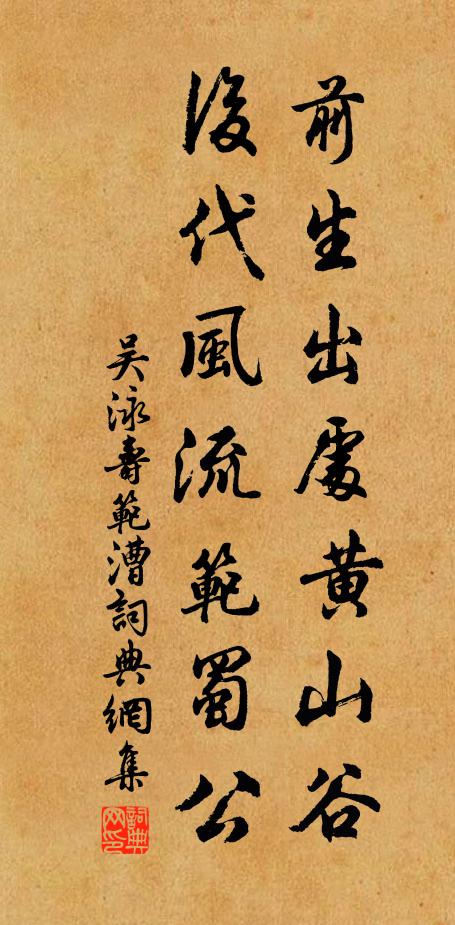 前生出處黄山谷
後代風流範蜀公
吴泳壽範漕詞典網集
詞典网印